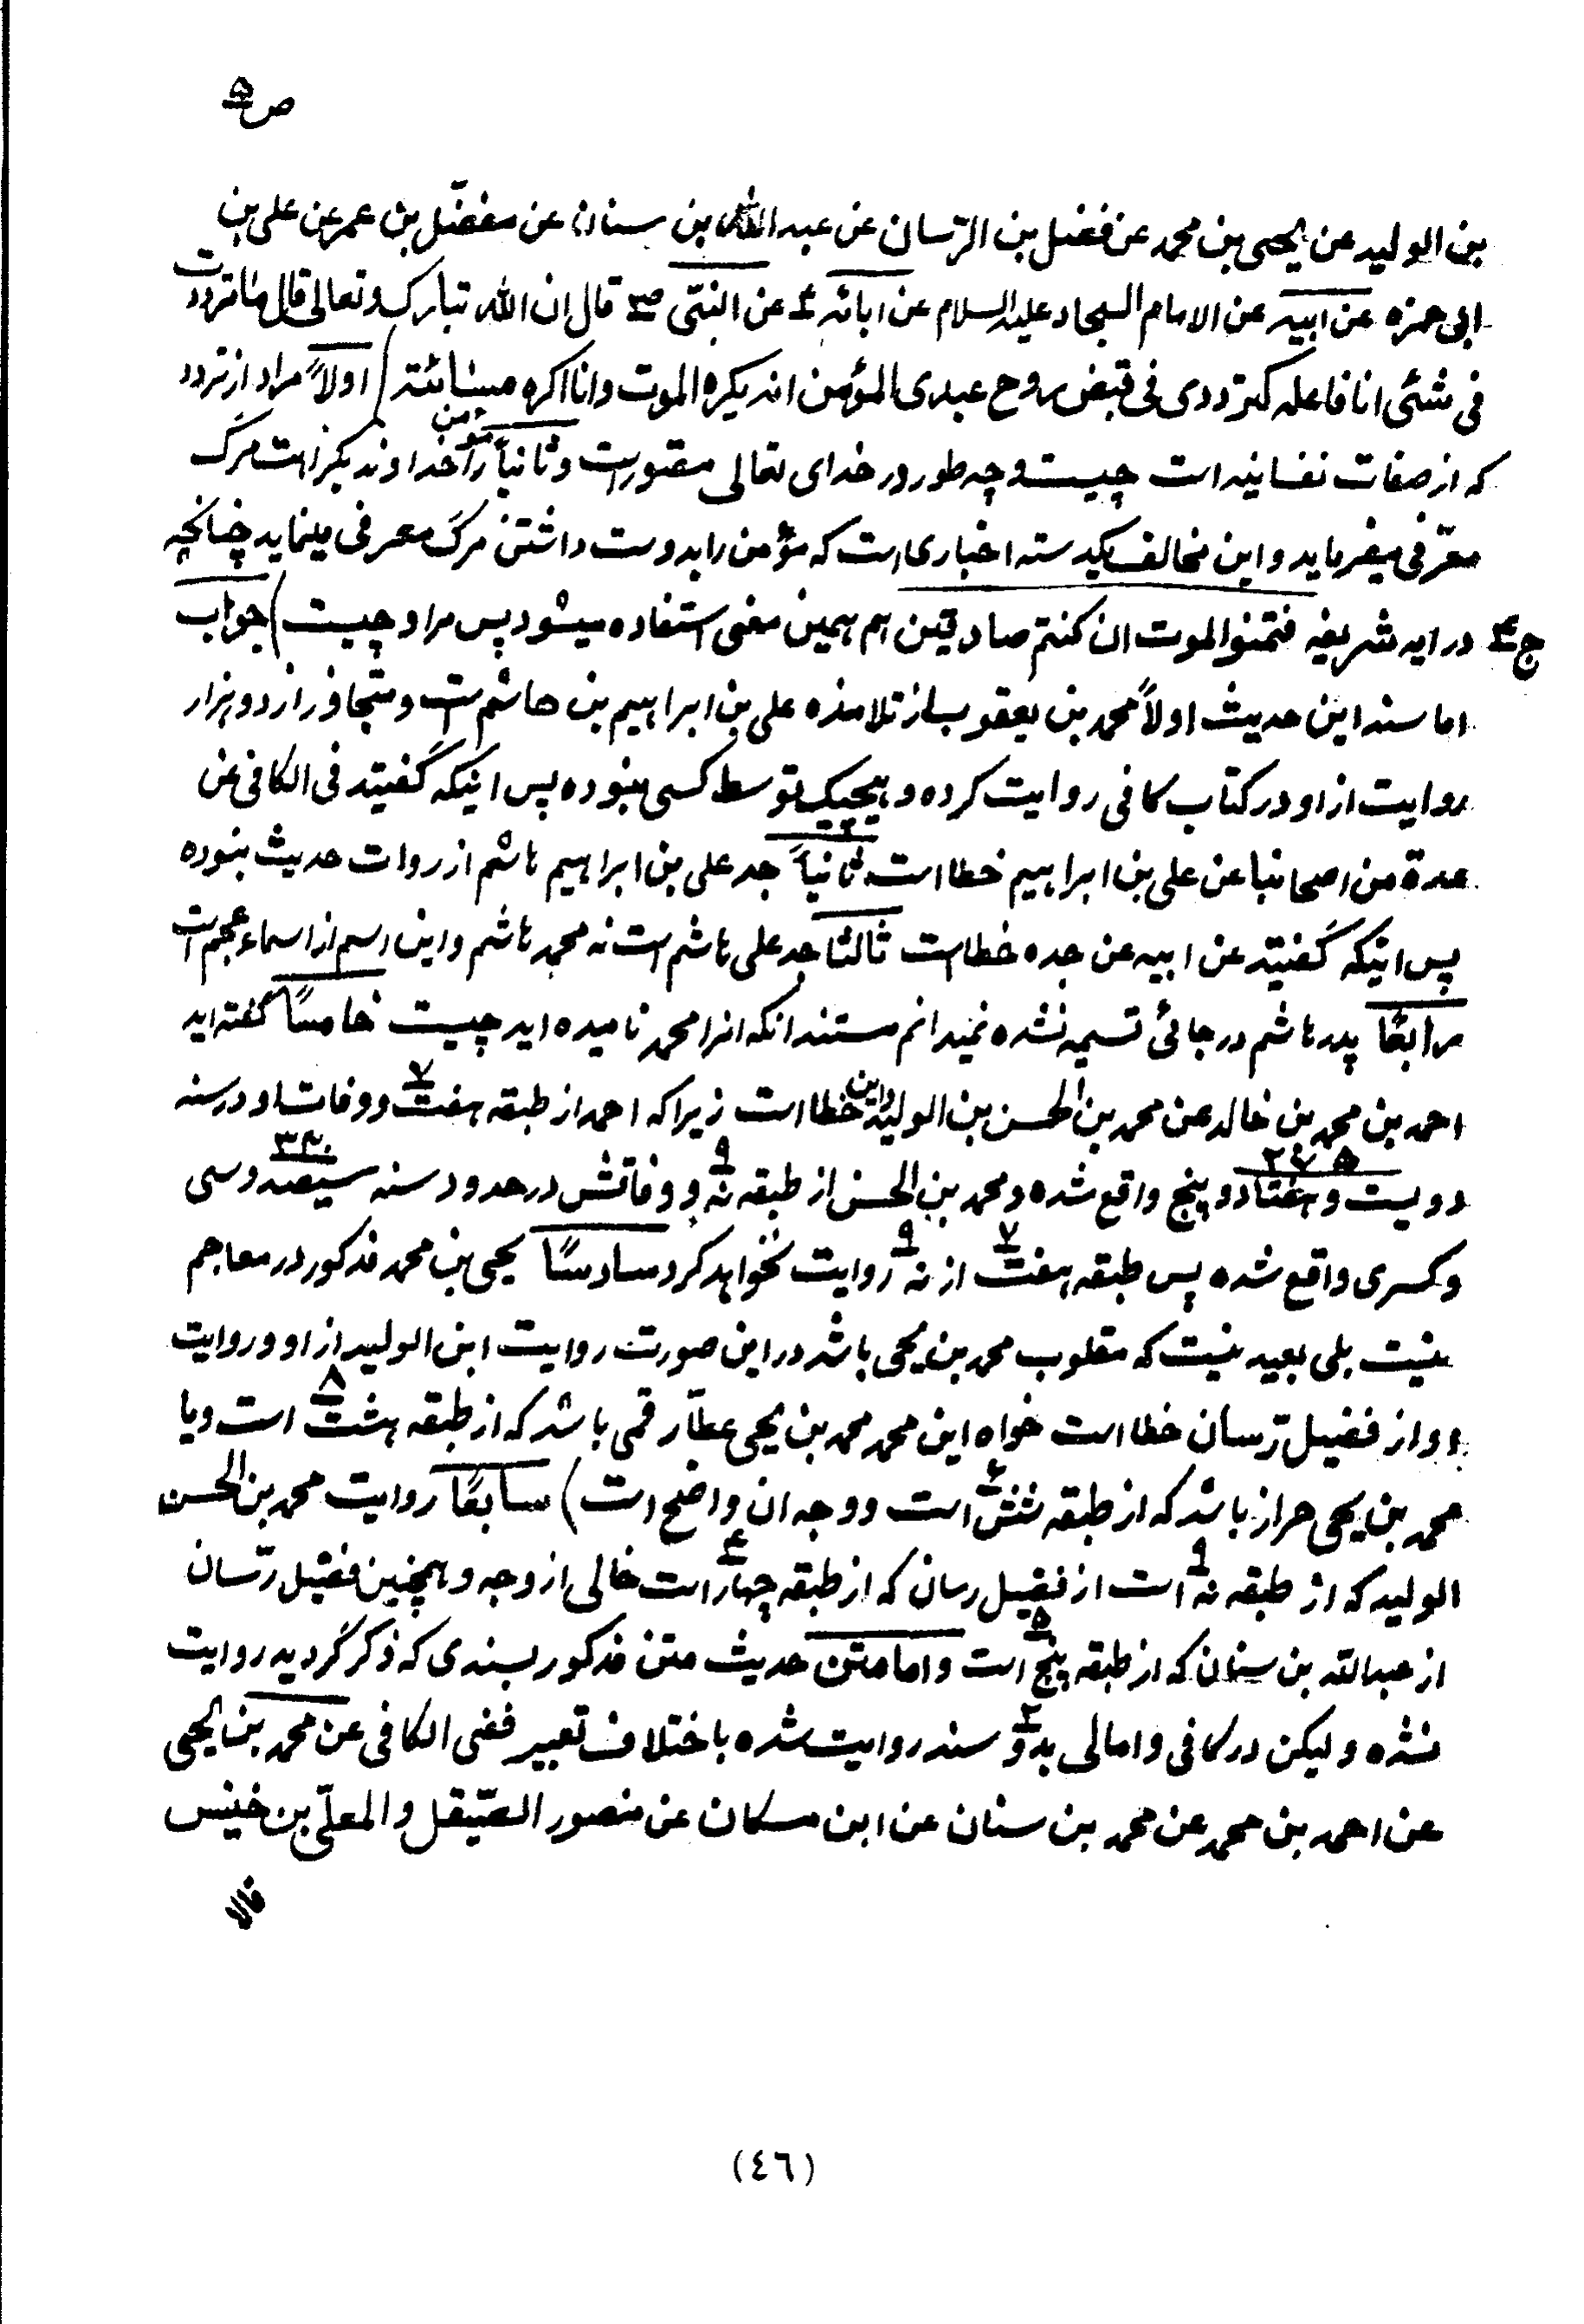 ص ۵
بن الولید عن یحیی بن محمد عن فضل بن الرّسان عن عبدالله بن سنان عن مفضّل بن عمر عن علی بن
ابی حمزه عن ابیه عن الامام السجاد علیه السلام عن ابائه ع عن النبّی ص قال ان الله تبارک و تعالی قال ما ترددت
فی شئی انا فاعله کترددی فی قبض روح عبدی المؤمن انه یکره الموت وانا اکره مسائته) اولاً مراد از تردد
که از صفات نفسانیه است چیست و چه طور در خدای تعالی مقتور است و ثانیاً مؤمن را خداوند بکراهت مرگ
معرّفی میفرماید و این مخالف یکدسته اخباری است که مؤمن را بدوست داشتن مرگ معرفی مینماید چنانچه
ج ۴ در ایه شریفه فتمنو الموت ان کنتم صادقین هم همین معنی استفاده میشود پس مراد چیست) جواب
اما سند این حدیث اولاً محمد بن یعقوب از تلامذه علی بن ابراهیم بن هاشم است و متجاوز از دو هزار
روایت از او در کتاب کافی روایت کرده و هیچیک توسط کسی نبوده پس اینکه گفتید فی الکافی عن
عدة من اصحابنا عن علی بن ابراهیم خطا است ثانیاً جد علی بن ابراهیم هاشم از روات حدیث نبوده
پس اینکه گفتید عن ابیه عن جده خطا است ثالثا جد علی هاشم است نه محمد هاشم و این اسم از اسماء عجم است
رابعًا پدر هاشم در جائی تسمیه نشده نمیدانم مستند انکه انرا محمد نامیده اید چیست خامسًا گفته اید
احمد بن محمد بن خالد عن محمد بن الحسن بن الولید و این خطا است زیرا که احمد از طبقه هفت ۷ و وفات او در سنه
دویست و هفتاد و پنج ۲۷۵ واقع شده و محمد بن الحسن از طبقه نه ۹ و وفاتش در حدود سنه سیصد و سی ۳۳۰
و کسری واقع شده پس طبقه هفت ۷ از نه ۹ روایت نخواهد کرد سادسًا یحیی بن محمد مذکور در معاجم
نیست بلی بعید نیست که مقلوب محمد بن یحیی باشد در این صورت روایت ابن الولید از او و روایت
او از فضیل رّسان خطا است خواه این محمد محمد بن یحیی عطّار قمی باشد که از طبقه هشت ۸ است و یا
محمد بن یحیی حراز باشد که از طبقه شش ۶ است و وجه ان واضح است) سابعًا روایت محمد بن الحسن
الولید که از طبقه نه ۹ است از فضیل رسان که از طبقه چهار ۴ است خالی از وجه و همچنین فضیل رّسان
از عبدالله بن سنان که از طبقه پنج ۵ است و اما متن حدیث متن مذکور بسندی که ذکر گردید روایت
نشده و لیکن در کافی و امالی بدو ۲ سند روایت شده با ختلاف تعبیر ففی الکافی عن محمد بن یحیی
عن احمد بن محمد عن محمد بن سنان عن ابن مسکان عن منصور الصّیقل والمعلّی بن خنیس
قالا
(٤٦)